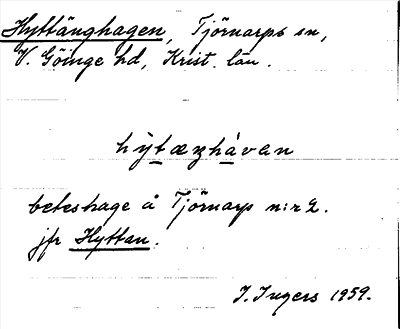 Hyttänghagen, Tjörnarps sn,
V. Göinge hd, Krist. län.
hỳ̱tæŋhá̱van
beteshage å Tjörnarp n:r 2.
jfr Hyttan.
I. Ingers 1959.